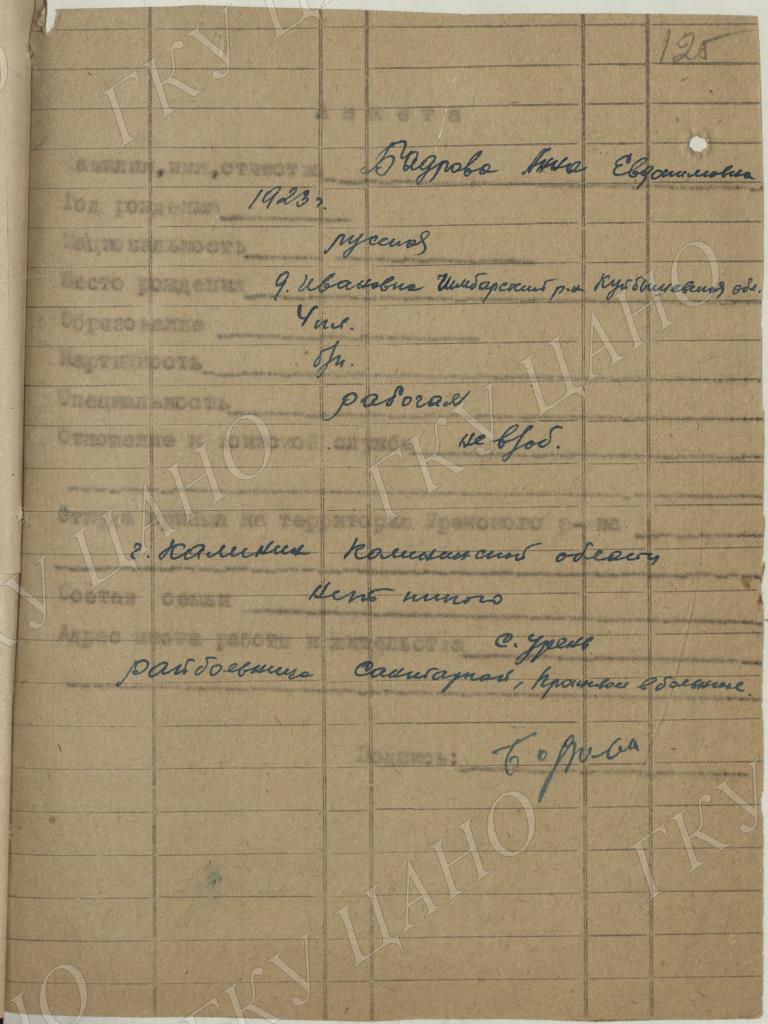 125
Анкета
амилия, имя, отчество Бадрова Анна Евдокимовна
Год рождения 1923 г.
Национальность русская
Место рождения д. Ивановка Чембарский р-н Куйбышевская обл.
Образование 4 кл.
Партийность б/п.
Специальность рабочая
Отношение к воинской службе не в/об.
Откуда прибыл на территорию Уренского р-на
г. Калинин Калининской области
Состав семьи нет никого
Адрес места работы и жительства с. Урень
райбольница санитаркой, в больнице.
Подпись:
ГКУ ЦАНО